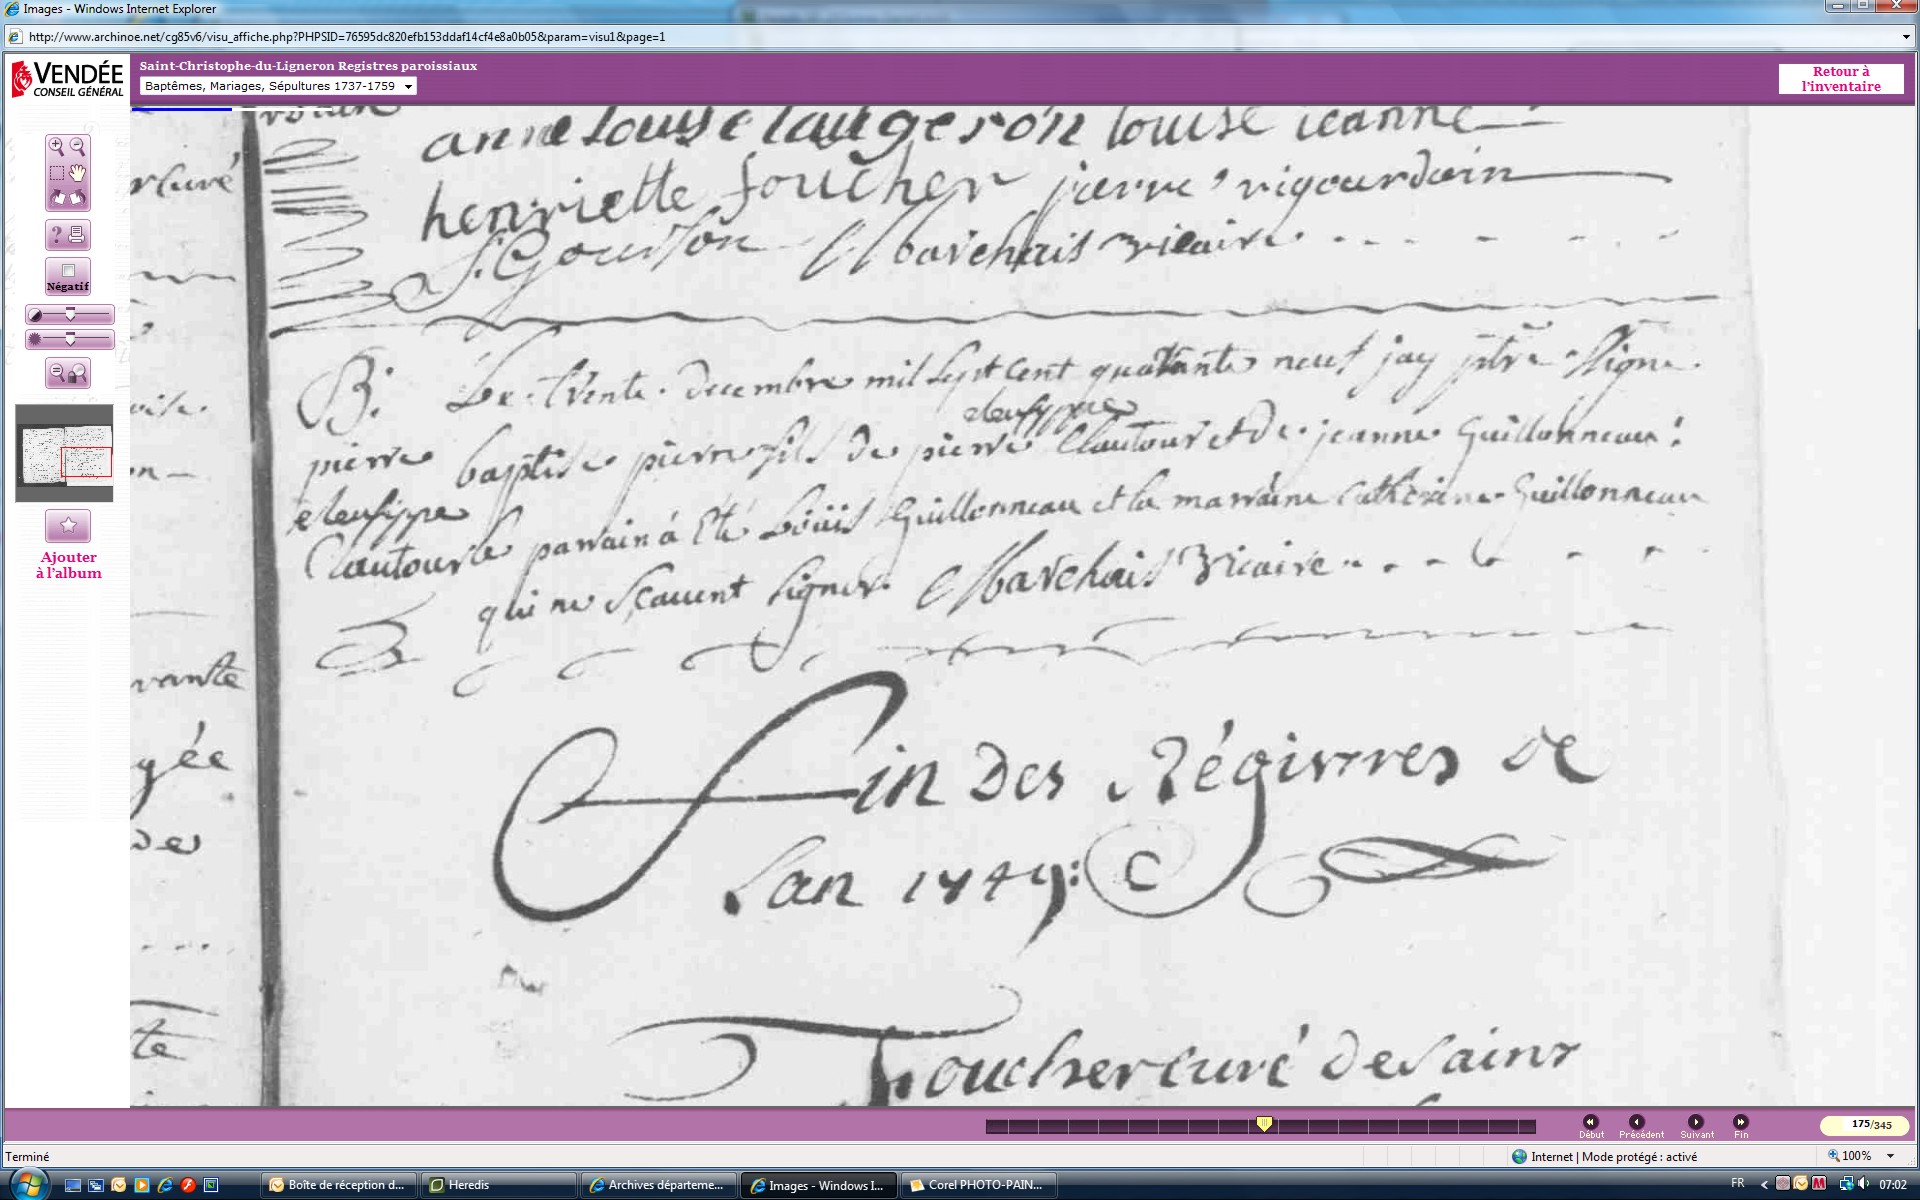 Images - Windows Internet Explorer
http://www.archinoe.net/cg85v6/visu_affiche.php?PHPSID=76595dc820efb153ddaf14cf4e8a0b05&param=visu1&page=1
VENDÉE
CONSEIL GÉNÉRAL
Saint-Christophe-du-Ligneron Registres paroissiaux
Baptêmes, Mariages, Sépultures 1737-1759
Retour à
l'inventaire
Négatif
Ajouter
à l'album
anne louise laugeron louise jeanne
henriette foucher pierre rigourdain
Marchais vicaire
B: Le trente decembre mil sept cent quarante neuf jay ptre signe
eleusippe
pierre baptise pierre fils de pierre Clautour et de jeanne Guillonneau
eleusippe
Clautour le parrain à été Loüis Guillonneau et la marraine catherine Guillonneau
qui ne scauent signer Marchais vicaire
vante
gée
de
te
Fin des Régistres de
Lan 1749: C
Foucher curé de saint
Début
Précédent
Suivant
Fin
175/345
Terminé
Internet | Mode protégé : activé
100%
Boîte de réception d...
Heredis
Archives départeme...
Images - Windows I...
Corel PHOTO-PAIN...
FR
07:02